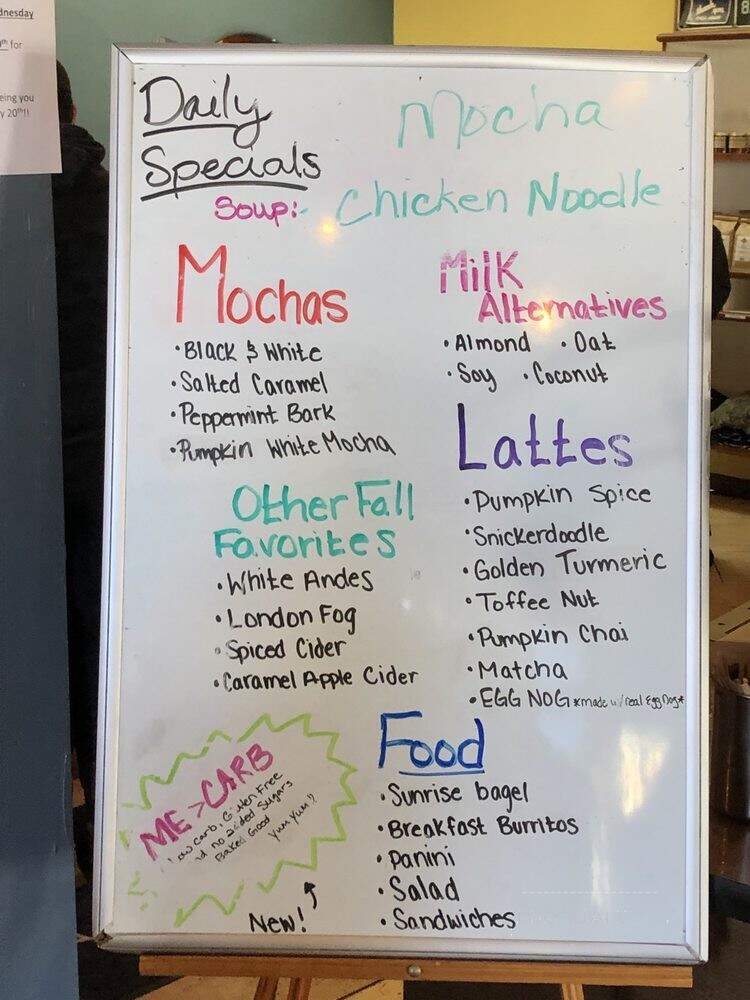 dnesday
th for
eing you
y 20th!!
Daily
Specials
Mocha
Soup:- Chicken Noodle
Mochas
• Black & White
• Salted Caramel
• Peppermint Bark
• Pumpkin White Mocha
Milk
Alternatives
• Almond • Oat
• Soy • Coconut
Lattes
• Pumpkin Spice
• Snickerdoodle
• Golden Turmeric
• Toffee Nut
• Pumpkin Chai
• Matcha
• EGG NOG *made w/real Egg Nog*
Other Fall
Favorites
• White Andes
• London Fog
• Spiced Cider
• Caramel Apple Cider
Food
• Sunrise bagel
• Breakfast Burritos
• Panini
• Salad
• Sandwiches
ME > CARB
Low carb, Gluten Free
no added Sugars
Baked Good
Yum Yum!!
New!